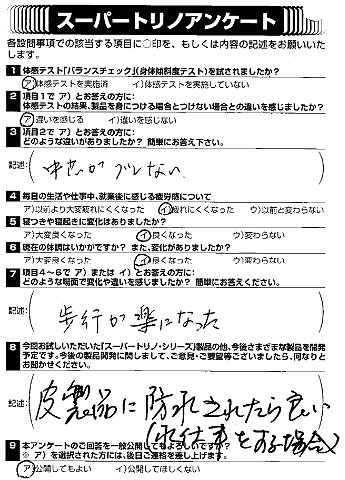 スーパートリノアンケート
各設問事項での該当する項目に○印を、もしくは内容の記述をお願いいたします。
1 体感テスト「バランスチェック」(身体傾斜度テスト)を試されましたか?
ア)体感テストを実施済 イ)体感テストを実施していない
2 項目1で ア)とお答えの方に:
体感テストの結果、製品を身につける場合とつけない場合との違いを感じましたか?
ア)違いを感じる イ)違いを感じない
3 項目2で ア)とお答えの方に:
どのような違いがありましたか? 簡単にお答え下さい。
記述: 中心がブレない
4 毎日の生活や仕事中、就業後に感じる疲労感について
ア)以前より大変疲れにくくなった イ)疲れにくくなった ウ)以前と変わらない
5 寝つきや寝起きに変化はありましたか?
ア)大変良くなった イ)良くなった ウ)変わらない
6 現在の体調はいかがですか? また、変化がありましたか?
ア)大変良くなった イ)良くなった ウ)変わらない
7 項目4~6で ア) または イ)とお答えの方に:
どのような場面で変化や違いを感じましたか? 簡単にお答えください。
記述: 歩行が楽になった
8 今回お試しいただいた「スーパートリノ・シリーズ」製品の他、今後さまざまな製品を開発
予定です。今後の製品開発に関しまして、ご意見・ご要望等ございましたら、何なりと
お聞かせください。
記述: 皮製品に防水されたら良い
(水仕事をする場合)
9 本アンケートのご回答を一般公開してもよろしいですか?
※ ア)を選択された方には、後日ご連絡を差し上げます。
ア)公開してもよい イ)公開してほしくない